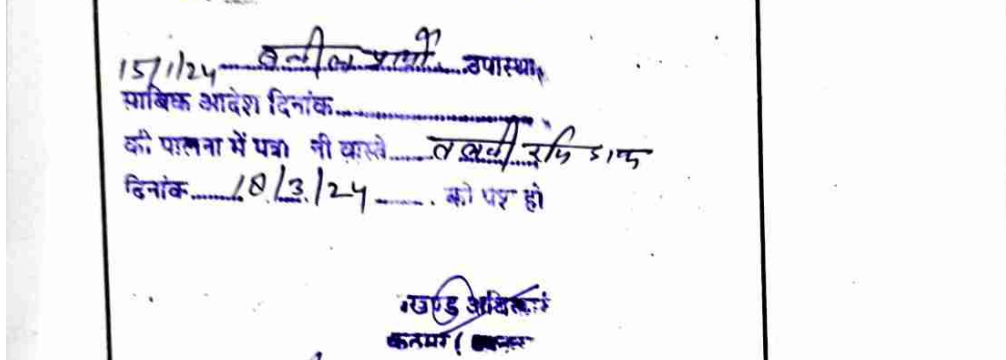 15/1/24 वकील प्रार्थी उपस्थित
साबिक आदेश दिनांक
की पालना में पत्रा ली वास्ते तलबी रजि डाक
दिनांक 18/3/24 को पेश हो
खण्ड अधिकारी